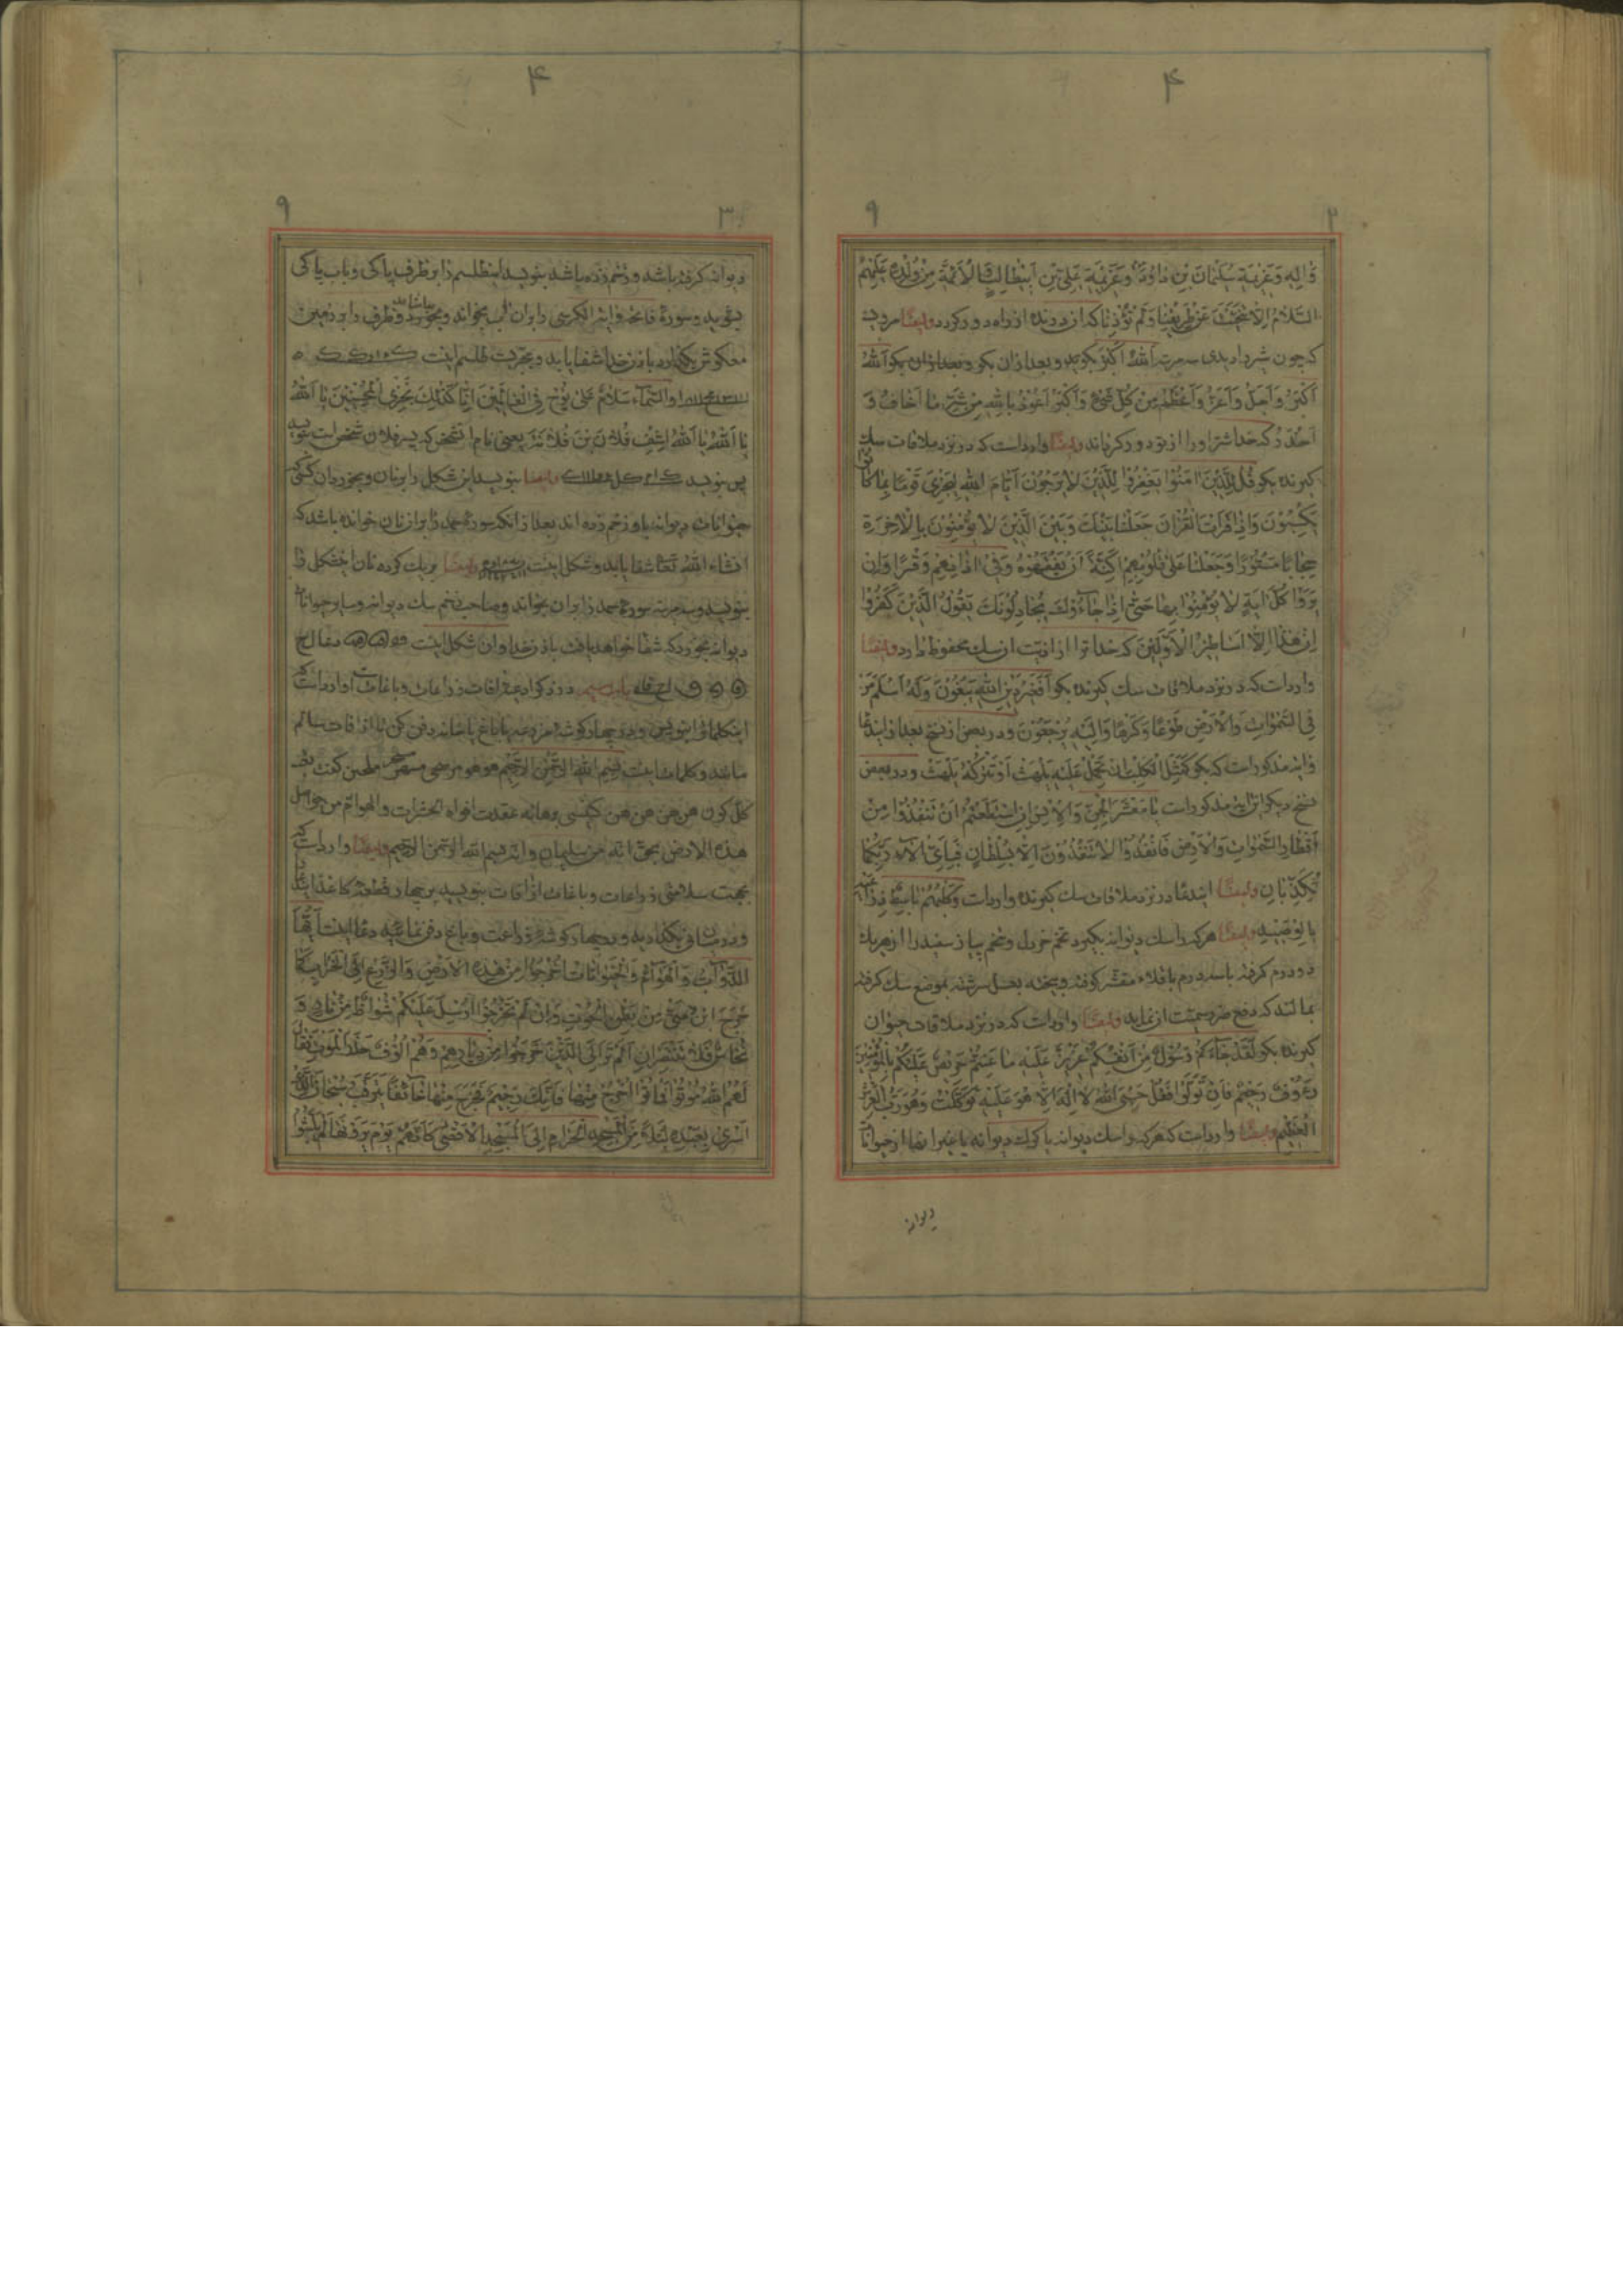 ۴
۹
وَالِهِ وَعَزيمَةِ سُلَيْمانَ بْنِ داوُدَ وَعَزيمَةِ عَلِيِّ بْنِ اَبيطالِبٍ وَالْاَئِمَّةِ مِنْ وُلْدِهِ عَلَيْهِمُ
السَّلامُ اِلّا تَنَحَّيْتَ عَنْ طَريقِنا وَلَمْ تُؤْذِنا که ان درنده از راه دور کردد وایضًا مرویست
که چون شیر را دیدی سه مرتبه اَللهُ اَکْبَرُ بکوید و بعد از ان بکو اَللهُ
اَکْبَرُ وَاَجَلُّ وَاَعَزُّ وَاَعْظَمُ مِنْ کُلِّ شَیْءٍ وَاَکْبَرُ اَعُوذُ بِاللهِ مِنْ شَرِّ ما اَخافُ وَ
اَحْذَرُ که خدا شر او را از تو دور کرداند وایضًا وارداست که در نزد ملاقات سك
کیرنده بکو قُلْ لِلَّذينَ امَنُوا يَغْفِرُوا لِلَّذينَ لا يَرْجُونَ اَيّامَ اللهِ لِيَجْزِيَ قَوْمًا بِما کانُوا
يَکْسِبُونَ وَاِذا قَرَاْتَ الْقُرْانَ جَعَلْنا بَيْنَكَ وَبَيْنَ الَّذينَ لا يُؤْمِنُونَ بِالْاخِرَةِ
حِجابًا مَسْتُورًا وَجَعَلْنا عَلى قُلُوبِهِمْ اَکِنَّةً اَنْ يَفْقَهُوهُ وَفي اذانِهِمْ وَقْرًا وَاِنْ
يَرَوْا کُلَّ ايَةٍ لا يُؤْمِنُوا بِها حَتّى اِذا جاءُوكَ يُجادِلُونَكَ يَقُولُ الَّذينَ کَفَرُوا
اِنْ هذا اِلّا اَساطيرُ الْاَوَّلينَ که خدا ترا از اذیت ان سك محفوظ دارد وایضًا
وارداست که در نزد ملاقات سك کیرنده بکو اَفَغَيْرَ دينِ اللهِ يَبْغُونَ وَلَهُ اَسْلَمَ مَنْ
فِي السَّمواتِ وَالْاَرْضِ طَوْعًا وَکَرْهًا وَاِلَيْهِ يُرْجَعُونَ و در بعض از نسخ بعد از ایندعا
وایه مذکوراست که بکو کَمَثَلِ الْکَلْبِ اِنْ تَحْمِلْ عَلَيْهِ يَلْهَثْ اَوْ تَتْرُکْهُ يَلْهَثْ و در بعض
نسخ دیکر این ایه مذکوراست يا مَعْشَرَ الْجِنِّ وَالْاِنْسِ اِنِ اسْتَطَعْتُمْ اَنْ تَنْفُذُوا مِنْ
اَقْطارِ السَّمواتِ وَالْاَرْضِ فَانْفُذُوا لا تَنْفُذُونَ اِلّا بِسُلْطانٍ فَبِاَيِّ الاءِ رَبِّکُما
تُکَذِّبانِ وایضًا ایندعا در نزد ملاقات سك کیرنده وارداست وَکَلْبُهُمْ باسِطٌ ذِراعَيْهِ
بِالْوَصيدِ وایضًا هرکه را سك دیوانه بکیرد تخم خردل و تخم پیاز سفید را از هریك
دو درم کرفته با سه درم باقلاء مقشر کوفته و بیخته بعسل سرشته بموضع سك کرفته
بمالند که دفع ضرر سمیت ان نماید وایضًا وارداست که در نزد ملاقات حیوان
کیرنده بکو لَقَدْ جاءَکُمْ رَسُولٌ مِنْ اَنْفُسِکُمْ عَزيزٌ عَلَيْهِ ما عَنِتُّمْ حَريصٌ عَلَيْکُمْ بِالْمُؤْمِنينَ
رَءُوفٌ رَحيمٌ فَاِنْ تَوَلَّوْا فَقُلْ حَسْبِيَ اللهُ لا اِلهَ اِلّا هُوَ عَلَيْهِ تَوَکَّلْتُ وَهُوَ رَبُّ الْعَرْشِ
الْعَظيمِ وایضًا وارداست که هرکه را سك دیوانه یا کرك دیوانه یا غیر انها از حیوانات
دیوانه
۴
۹
۳
دیوانه کرفته باشد و زخم زده باشد بنویسد اینطلسم را بر ظرف پاکی و باب پاکی
بشوید و سورهٔ فاتحه وایة الکرسی را بران اب بخواند و بخورد و ظرف را بر زمین
معکوس بکذارد باذن خدا شفا یابد و مجربست طلسم اینست
والسماء سَلامٌ عَلى نُوحٍ فِي الْعالَمينَ اِنّا کَذلِكَ نَجْزِي الْمُحْسِنينَ يا اَللهُ
يا اَللهُ يا اَللهُ اِشْفِ فُلانَ بْنَ فُلانَةَ یعنی نام انشخص که پسر فلان شخص است
پس بنویسد وایضًا بنویسد این شکل را بر نان و بخورد ان کسی که
حیوانات دیوانه باو زخم زده اند بعد از انکه سورهٔ حمد را بر ان نان خوانده باشد که
انشاء الله تعا شفا یابد و شکل اینست وایضًا بر یك کرده نان اینشکل را
بنویسد و سه مرتبه سورهٔ حمد را بر ان بخواند و صاحب زخم سك دیوانه و سایر حیوانات
دیوانه بخورد که شفا خواهد یافت باذن خدا وان شکل اینست
باب سیم در ذکر ادعیه افات زراعات و باغات وارداست که
اینکلمات را بنویس و در چهار کوشه مزرعه یا باغ یا خانه دفن کن تا از افات سالم
ماند و کلمات اینست بِسْمِ اللهِ الرَّحْمنِ الرَّحيمِ هو هو
عقدت افواه الحشرات والهوام من حوالی
هذه الارض بحق انه من سلیمان وانه بسم الله الرحمن الرحیم وایضًا وارداست که
بجهت سلامتی زراعات و باغات از افات بنویسید بر چهار قطعه کاغذ
و در چهار کوشهٔ زراعت و باغ دفن نمائید دعا اینست اَيَّتُهَا
الدَّوابُّ وَالْهَوامُّ وَالْحَيَواناتُ اُخْرُجُوا مِنْ هذِهِ الْاَرْضِ وَالزَّرْعِ اِلَى الْخَرابِ کَما
خَرَجَ ابْنُ مَتّى مِنْ بَطْنِ الْحُوتِ وَاِنْ لَمْ تَخْرُجُوا اُرْسِلَ عَلَيْکُمْ شُواظٌ مِنْ نارٍ وَ
نُحاسٌ فَلا تَنْتَصِرانِ اَلَمْ تَرَ اِلَى الَّذينَ خَرَجُوا مِنْ دِيارِهِمْ وَهُمْ اُلُوفٌ حَذَرَ الْمَوْتِ فَقالَ
لَهُمُ اللهُ مُوتُوا فَماتُوا اُخْرُجْ مِنْها فَاِنَّكَ رَجيمٌ فَخَرَجَ مِنْها خائِفًا يَتَرَقَّبُ سُبْحانَ الَّذي
اَسْرى بِعَبْدِهِ لَيْلًا مِنَ الْمَسْجِدِ الْحَرامِ اِلَى الْمَسْجِدِ الْاَقْصى کَاَنَّهُمْ يَوْمَ يَرَوْنَها لَمْ يَلْبَثُوا